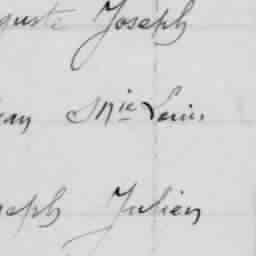 guste Joseph
ean Mie Louis
seph Julien